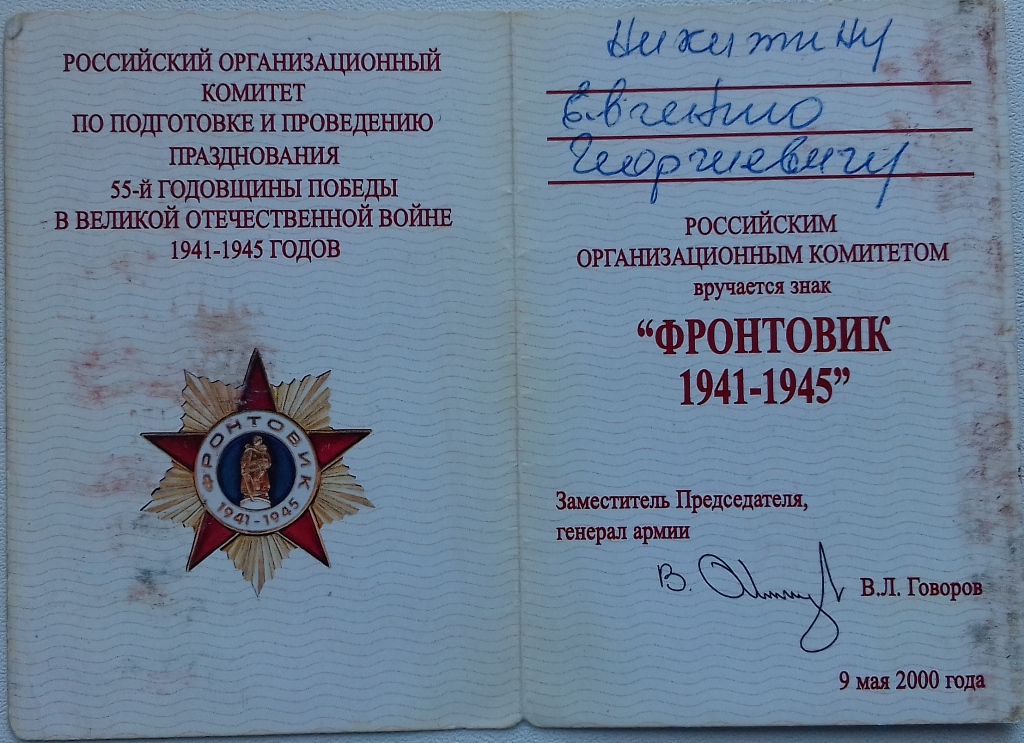 РОССИЙСКИЙ ОРГАНИЗАЦИОННЫЙ
КОМИТЕТ
ПО ПОДГОТОВКЕ И ПРОВЕДЕНИЮ
ПРАЗДНОВАНИЯ
55-Й ГОДОВЩИНЫ ПОБЕДЫ
В ВЕЛИКОЙ ОТЕЧЕСТВЕННОЙ ВОЙНЕ
1941-1945 ГОДОВ
ФРОНТОВИК
1941-1945
Никитину
Евгению
Георгиевичу
РОССИЙСКИМ
ОРГАНИЗАЦИОННЫМ КОМИТЕТОМ
вручается знак
“ФРОНТОВИК
1941-1945”
Заместитель Председателя,
генерал армии
В.Л. Говоров
9 мая 2000 года